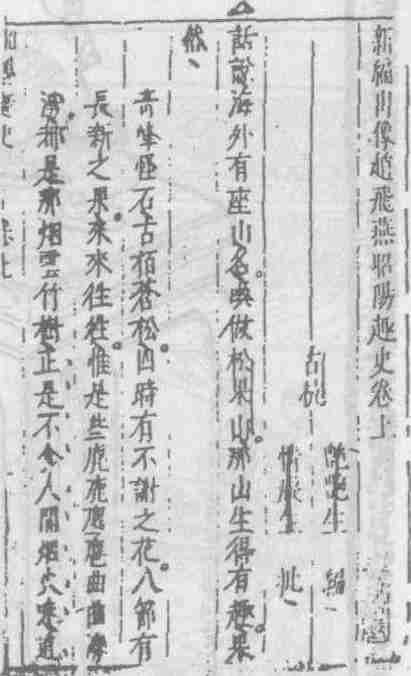 新編出像趙飛燕昭陽趣史卷上
古杭
艷艷生 編
情癡生 批
話說海外有座山名喚做松果山那山生得有趣果
然
奇峰怪石古栢蒼松四時有不謝之花八節有
長新之果來來往往惟是些虎鹿麏麀曲曲灣
灣都是那烟雲竹樹正是不食人間烟火味逍
昭陽趣史